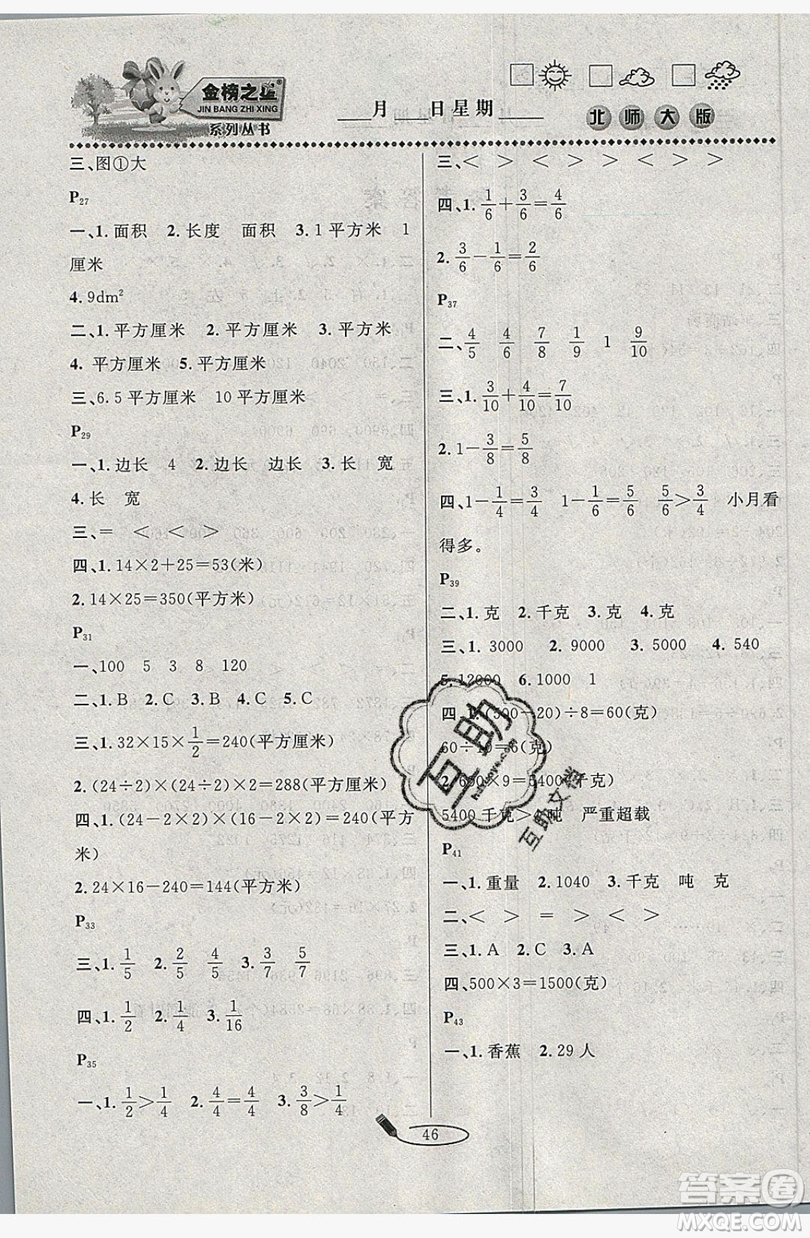 金榜之星®
JIN BANG ZHI XING
系列丛书
月 日星期
北师大版
三、图①大
P27
一、1. 面积 2. 长度 面积 3. 1平方米 1
厘米
4. 9dm²
二、1. 平方厘米 2. 平方厘米 3. 平方米
4. 平方厘米 5. 平方厘米
三、6.5平方厘米 10平方厘米
P29
一、1. 边长 4 2. 边长 边长 3. 长 宽
4. 长 宽
三、= < < >
四、1. 14×2+25=53(米)
2. 14×25=350(平方米)
P31
一、100 5 3 8 120
二、1. B 2. C 3. B 4. C 5. C
三、1. 32×15×1/2=240(平方米)
2. (24÷2)×(24÷2)×2=288(平方米)
四、1. (24-2×2)×(16-2×2)=240(平方
米)
2. 24×16-240=144(平方米)
P33
三、1. 1/5 2/5 2. 4/5 3/5 3. 3/7 3/7
四、1. 1/4 2. 1/4 3. 1/16
P35
一、1. 1/2>1/4 2. 4/4=4/4 3. 3/8>1/4
三、< < > > > >
四、1. 1/6+3/6=4/6
2. 3/6-1/6=2/6
P37
二、4/5 4/6 7/8 7/9 1 9/10
三、1. 3/10+4/10=7/10
2. 1-3/8=5/8
四、1-1/4=3/4 1-1/6=5/6 5/6>3/4 小月看
得多。
P39
二、1. 克 2. 千克 3. 克 4. 克
三、1. 3000 2. 9000 3. 5000 4. 540
5. 12000 6. 1000 1
四、1. (500-20)÷8=60(克)
60÷10=6(克)
2. 600×9=5400(千克)
5400千克> 吨 严重超载
P41
一、1. 重量 2. 1040 3. 千克 吨 克
二、< > = > < >
三、1. A 2. C 3. A
四、500×3=1500(克)
P43
一、1. 香蕉 2. 29人
46
互助
互助文档
答案圈
MXQE.COM